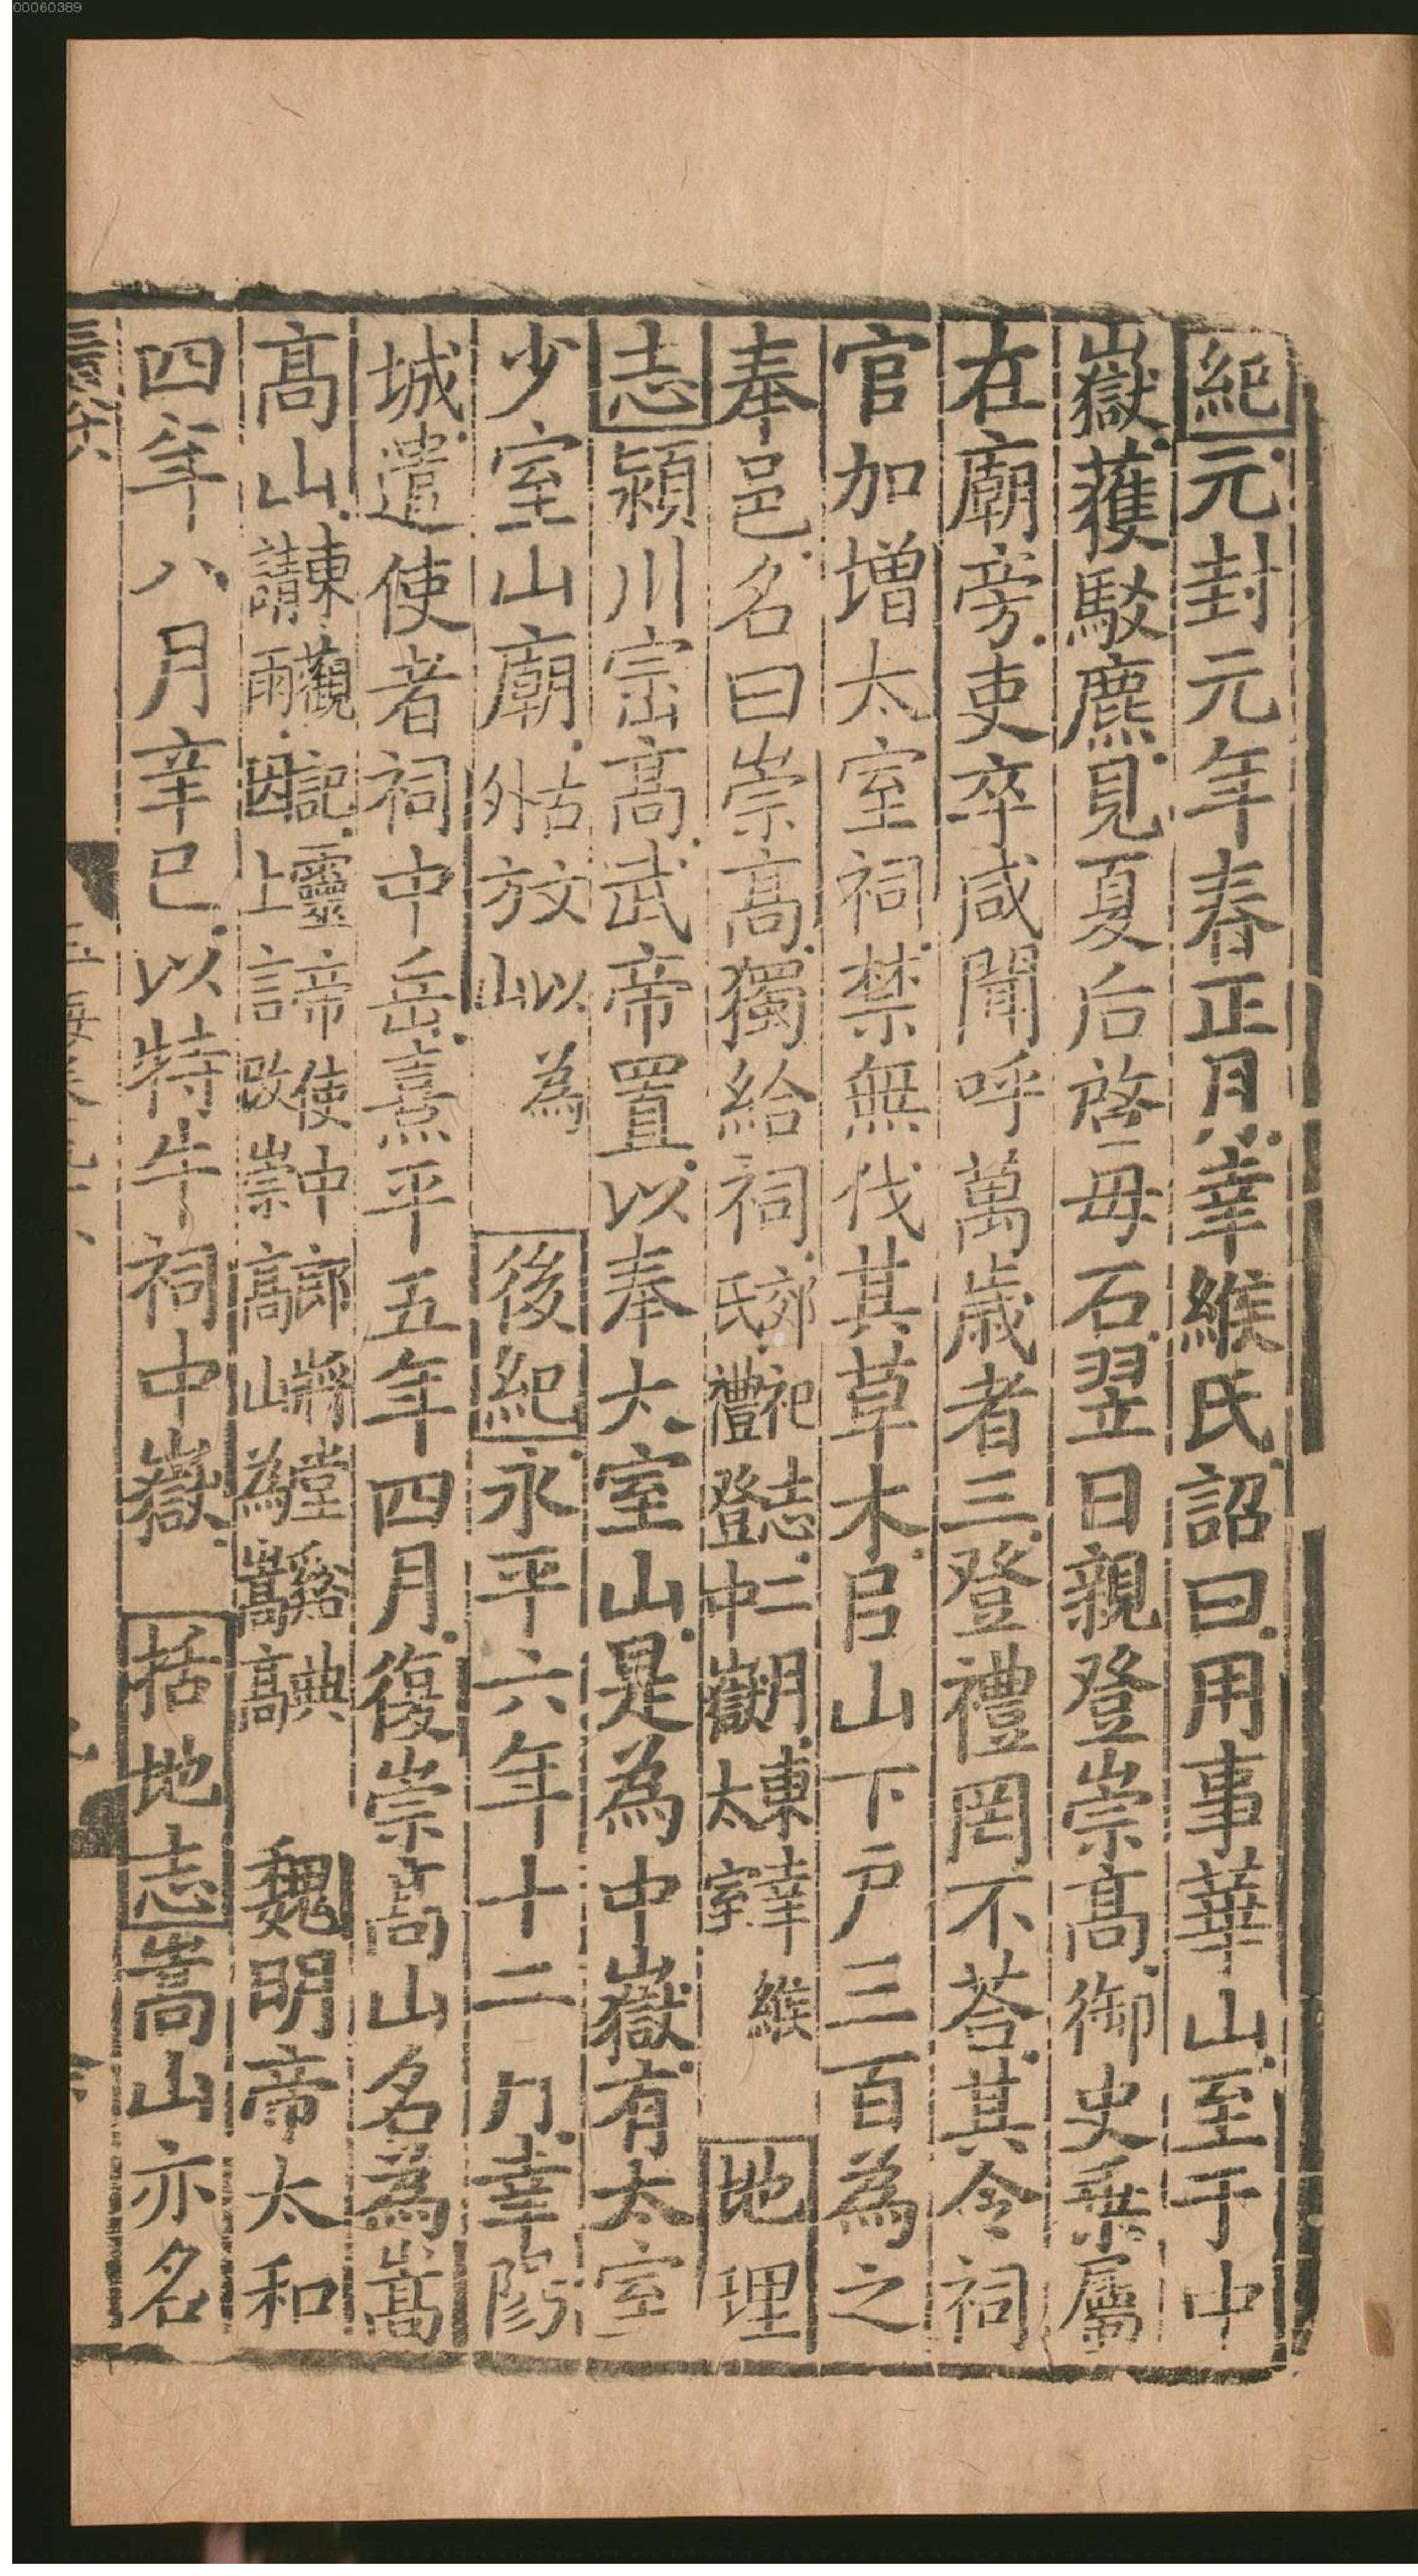 00060389
紀元封元年春正月幸緱氏詔曰用事華山至于中
嶽獲駮麃見夏后啓母石翌日親登崇高御史乗屬
在廟旁吏卒咸聞呼萬歲者三登禮罔不荅其令祠
官加增太室祠禁無伐其草木㠯山下戶三百為之
奉邑名曰崇高獨給祠郊祀志二明東幸緱氏禮登中嶽太室地理
志潁川崈高武帝置以奉大室山是為中嶽有太室
少室山廟古文以為外方山後紀永平六年十二月幸陽
城遣使者祠中岳熹平五年四月復崇高山名為嵩
高山東觀記靈帝使中郎將堂谿典請雨因上言改崇高山為嵩高魏明帝太和
四年八月辛巳以特牛祠中嶽括地志嵩山亦名